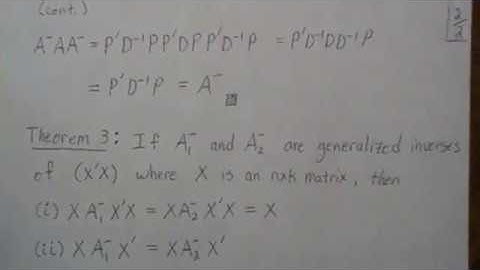 (cont.)
2/2
A⁻AA⁻ = P'D⁻¹PP'DPP'D⁻¹P = P'D⁻¹DD⁻¹P
= P'D⁻¹P = A⁻
Theorem 3: If A₁⁻ and A₂⁻ are generalized inverses
of (X'X) where X is an nxk matrix, then
(i) XA₁⁻X'X = XA₂⁻X'X = X
(ii) XA₁⁻X' = XA₂⁻X'